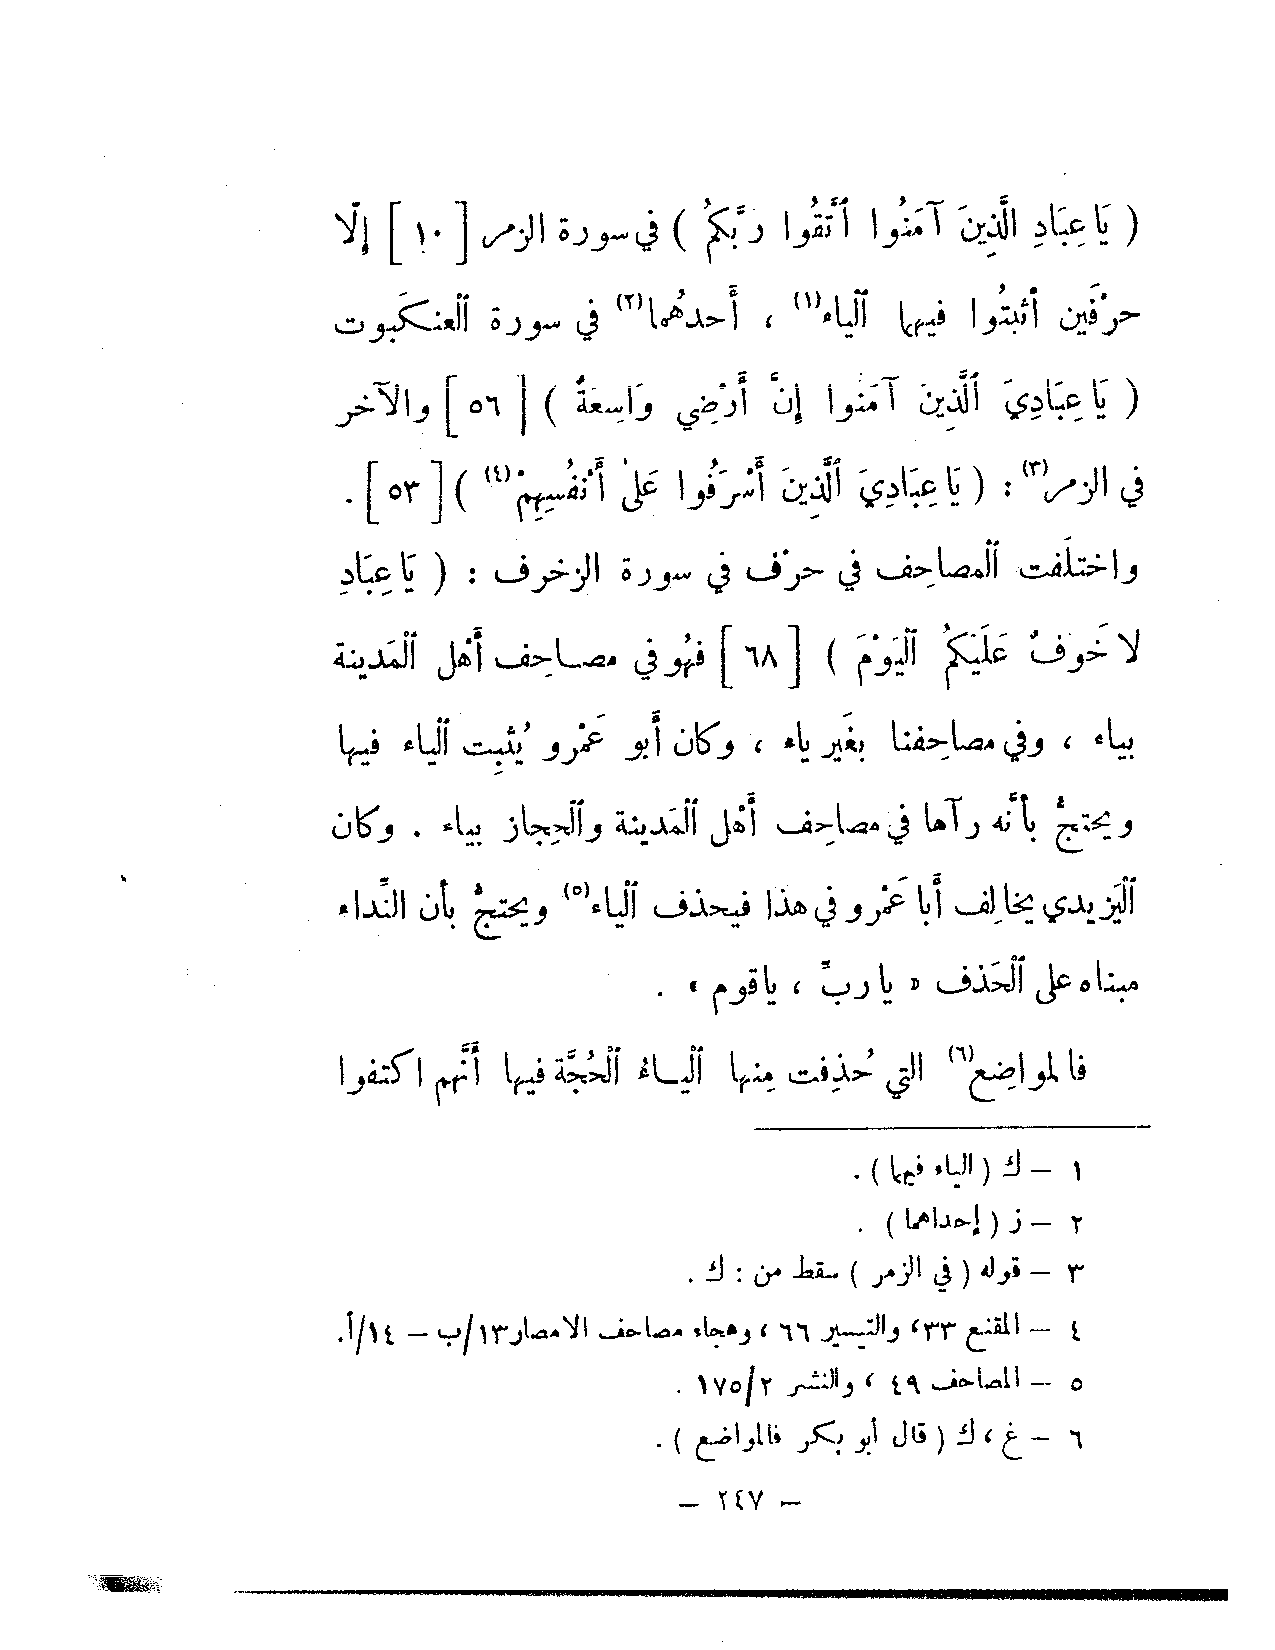 ( يَا عِبَادِ الَّذِينَ آمَنُوا ٱتَّقُوا رَبَّكُمْ ) في سورة الزمر [ ١٠ ] إلَّا
حرْفَين أثبتُوا فيها ٱلياء(١) ، أحدهُما(٢) في سورة ٱلعنكَبوت
( يَا عِبَادِيَ ٱلَّذِينَ آمَنُوا إنَّ أَرْضِي وَاسِعَةٌ ) [ ٥٦ ] والآخر
في الزمر(٣) : ( يَا عِبَادِيَ ٱلَّذِينَ أَسْرَفُوا عَلَى أَنْفُسِهِمْ(٤) ) [ ٥٣ ] .
واختلَفت ٱلمصاحِف في حرْف في سورة الزخرف : ( يَا عِبَادِ
لَا خَوفٌ عَلَيْكُمُ ٱلْيَوْمَ ) [ ٦٨ ] فهُو في مصاحِف أهل ٱلمَدينة
بياء ، وفي مصاحِفنا بغَير ياء ، وكان أبو عَمْرو يُثْبِت ٱلياء فيها
ويحتجُّ بأنه رآها في مصاحِف أهل ٱلمَدينة وٱلحِجاز بياء . وكان
ٱليَزيدي يخالِف أبا عَمْرو في هذا فيحذف ٱلياء(٥) ويحتجُّ بأن النِّداء
مبناه على ٱلحَذف « يا ربِّ ، ياقوم » .
فالمواضِع(٦) التي حُذِفت مِنها ٱلياءُ ٱلحُجَّة فيها أنَّهم اكتفوا
١ – ك ( الياء فيها ) .
٢ – ز ( إحداهما ) .
٣ – قوله ( في الزمر ) سقط من : ك .
٤ – المقنع ٣٣، والتيسير ٦٦ ، وهجاء مصاحف الامصار ١٣/ب – ١٤/أ.
٥ – المصاحف ٤٩ ، والنشر ٢/١٧٥ .
٦ – غ ، ك ( قال أبو بكر فالمواضع ) .
– ٢٤٧ –